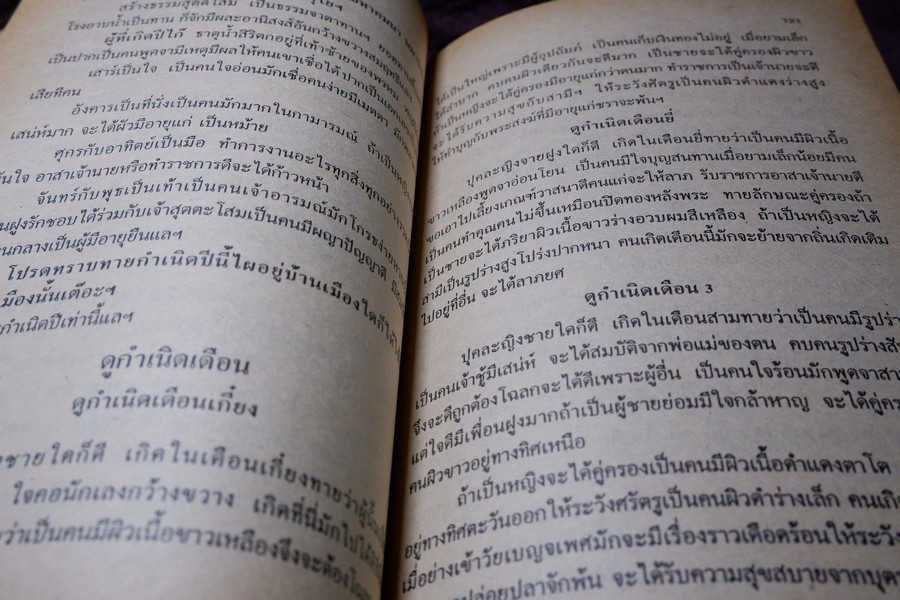 สร้างธรรมสุดตโสม เป็นธรรมจาตาทานฯ
โรงอาบน้ำเป็นทาน ก็จักมีผละอานิสงส์อันกว้างขวางสมฤทธิ
ผู้ที่เกิดปีไก๊ ธาตุน้ำสิริตกอยู่ที่เท้าซ้ายของพรหม
เป็นปากเป็นคนพูดจามีเหตุมีผลให้คนเขาเชื่อได้ ปากเป็นเอก
เสาร์เป็นใจ เป็นคนใจอ่อนมักเชื่อคนง่ายมีเมตตา
เสียทีคน
อังคารเป็นที่นั่งเป็นคนมักมากในกามารมณ์ ถ้าเป็น
เสน่ห์มาก จะได้ผัวมีอายุแก่ เป็นหม้าย
ศุกรกับอาทิตย์เป็นมือ ทำการงานอะไรทุกสิ่งทุกอย่าง
ใจ อาสาเจ้านายหรือทำราชการดีจะได้ก้าวหน้า
จันทร์กับพุธเป็นเท้าเป็นคนเจ้าอารมณ์มักโกรธง่าย
ฝูงรักชอบได้ร่วมกับเจ้าสุตตะโสมเป็นคนมีผญาปัญญาดี
กลางเป็นผู้มีอายุยืนแลฯ
โปรดทราบทายกำเนิดปีนี้ไผอยู่บ้านเมืองใดก็
เมืองนั้นเต๊อะฯ
กำเนิดปีเท่านี้แลฯ
ดูกำเนิดเดือน
ดูกำเนิดเดือนเกี๋ยง
ชายใดก็ดี เกิดในเดือนเกี๋ยงทายว่าผู้นั้น
ใจคอนักเลงกว้างขวาง เกิดที่นี่มักไปได้
ว่าเป็นคนมีผิวเนื้อขาวเหลืองจึงจะต้อง
121
ได้เป็นใหญ่เพราะมีผู้อุปถัมภ์ เป็นคนเก็บเงินทองไม่อยู่ เมื่อยามเล็ก
ได้ลำบาก คบคนผิวเดียวกันจะดีมาก เป็นชายจะได้คู่ครองผิวขาว
ถ้าเป็นหญิงจะได้คู่ครองมีอายุแก่กว่าตนมาก ทำราชการเป็นเจ้านายจะดี
จะได้รับความสุขกับสามีฯ ให้ระวังศัตรูเป็นคนผิวดำแดงร่างสูง
ให้ทำบุญกับพระสงฆ์ที่มีอายุแก่ชราจะพ้นฯ
ดูกำเนิดเดือนยี่
ปุคละญิงจายฝูงใดก็ดี เกิดในเดือนยี่ทายว่าเป็นคนมีผิวเนื้อ
ขาวเหลืองพูดจาอ่อนโยน เป็นคนมีใจบุญสนทานเมื่อยามเล็กน้อยมีคน
ขอเอาไปเลี้ยงเกณฑ์วาสนาดีคนแก่จะให้ลาภ รับราชการอาสาเจ้านายดี
เป็นคนทำคุณคนไม่ขึ้นเหมือนปิดทองหลังพระ ทายลักษณะคู่ครองถ้า
เป็นชายจะได้ภริยาผิวเนื้อขาวร่างอวบผมสีเหลือง ถ้าเป็นหญิงจะได้
สามีเป็นรูปร่างสูงโปร่งปากหนา คนเกิดเดือนนี้มักจะย้ายจากถิ่นเกิดเดิม
ไปอยู่ที่อื่น จะได้ลาภยศ
ดูกำเนิดเดือน 3
ปุคละญิงชายใดก็ดี เกิดในเดือนสามทายว่าเป็นคนมีรูปร่าง
เป็นคนเจ้าชู้มีเสน่ห์ จะได้สมบัติจากพ่อแม่ของตน คบคนรูปร่าง
จึงจะดีถูกต้องโฉลกจะได้ดีเพราะผู้อื่น เป็นคนใจร้อนมักพูดจา
แต่ใจดีมีเพื่อนฝูงมากถ้าเป็นผู้ชายย่อมมีใจกล้าหาญ จะได้คู่
คนผิวขาวอยู่ทางทิศเหนือ
ถ้าเป็นหญิงจะได้คู่ครองเป็นคนมีผิวเนื้อดำแดงตาโต
อยู่ทางทิศตะวันออกให้ระวังศรัตรูเป็นคนผิวดำร่างเล็ก คนเกิ
เมื่อย่างเข้าวัยเบญจเพศมักจะมีเรื่องราวเดือดร้อนให้ระวัง
ปล่อยปลาจักพ้น จะได้รับความสุขสบายจากบุตร